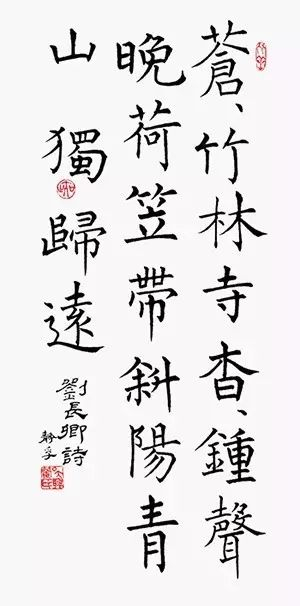 蒼、竹林寺杳、鍾聲
晚荷笠帶斜陽青
山獨歸遠
劉長卿詩